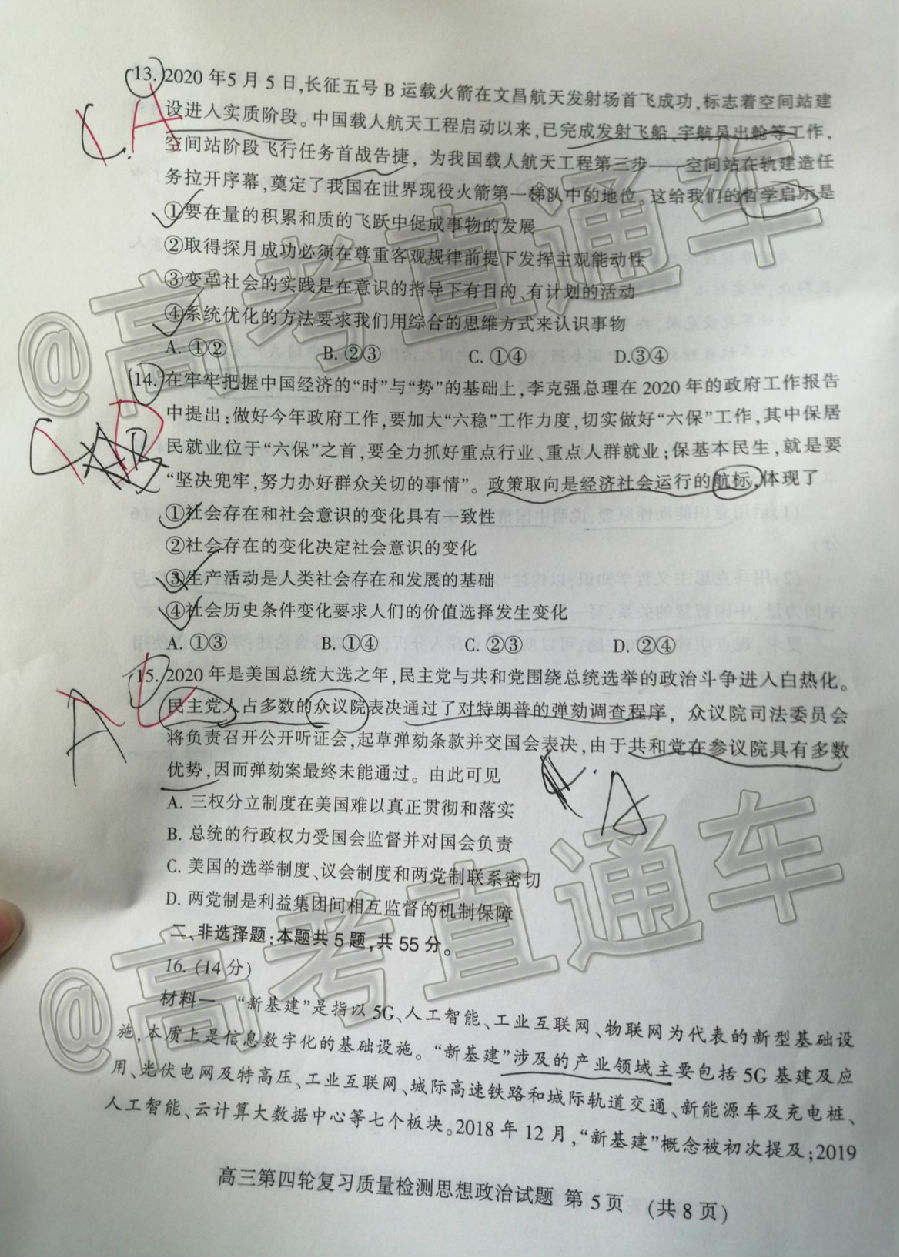 13. 2020年5月5日,长征五号B运载火箭在文昌航天发射场首飞成功,标志着空间站建
设进入实质阶段。中国载人航天工程启动以来,已完成发射飞船、宇航员出舱等工作,
空间站阶段飞行任务首战告捷,为我国载人航天工程第三步——空间站在轨建造任
务拉开序幕,奠定了我国在世界现役火箭第一梯队中的地位。这给我们的哲学启示是
①要在量的积累和质的飞跃中促成事物的发展
②取得探月成功必须在尊重客观规律前提下发挥主观能动性
③变革社会的实践是在意识的指导下有目的、有计划的活动
④系统优化的方法要求我们用综合的思维方式来认识事物
A. ①② B. ②③ C. ①④ D.③④
C. A
14. 在牢牢把握中国经济的“时”与“势”的基础上,李克强总理在2020年的政府工作报告
中提出:做好今年政府工作,要加大“六稳”工作力度,切实做好“六保”工作,其中保居
民就业位于“六保”之首,要全力抓好重点行业、重点人群就业;保基本民生,就是要
“坚决兜牢,努力办好群众关切的事情”。政策取向是经济社会运行的航标,体现了
①社会存在和社会意识的变化具有一致性
②社会存在的变化决定社会意识的变化
③生产活动是人类社会存在和发展的基础
④社会历史条件变化要求人们的价值选择发生变化
A. ①③ B. ①④ C. ②③ D. ②④
D
B
15. 2020年是美国总统大选之年,民主党与共和党围绕总统选举的政治斗争进入白热化。
民主党人占多数的众议院表决通过了对特朗普的弹劾调查程序,众议院司法委员会
将负责召开公开听证会,起草弹劾条款并交国会表决,由于共和党在参议院具有多数
优势,因而弹劾案最终未能通过。由此可见
A. 三权分立制度在美国难以真正贯彻和落实
B. 总统的行政权力受国会监督并对国会负责
C. 美国的选举制度、议会制度和两党制联系密切
D. 两党制是利益集团间相互监督的机制保障
A C
A
二、非选择题:本题共5题,共55分。
16. (14分)
材料一 “新基建”是指以5G、人工智能、工业互联网、物联网为代表的新型基础设
施,本质上是信息数字化的基础设施。“新基建”涉及的产业领域主要包括5G基建及应
用、光伏电网及特高压、工业互联网、城际高速铁路和城际轨道交通、新能源车及充电桩、
人工智能、云计算大数据中心等七个板块。2018年12月,“新基建”概念被初次提及;2019
高三第四轮复习质量检测思想政治试题 第5页 (共8页)
@高考直通车
@高考直通车